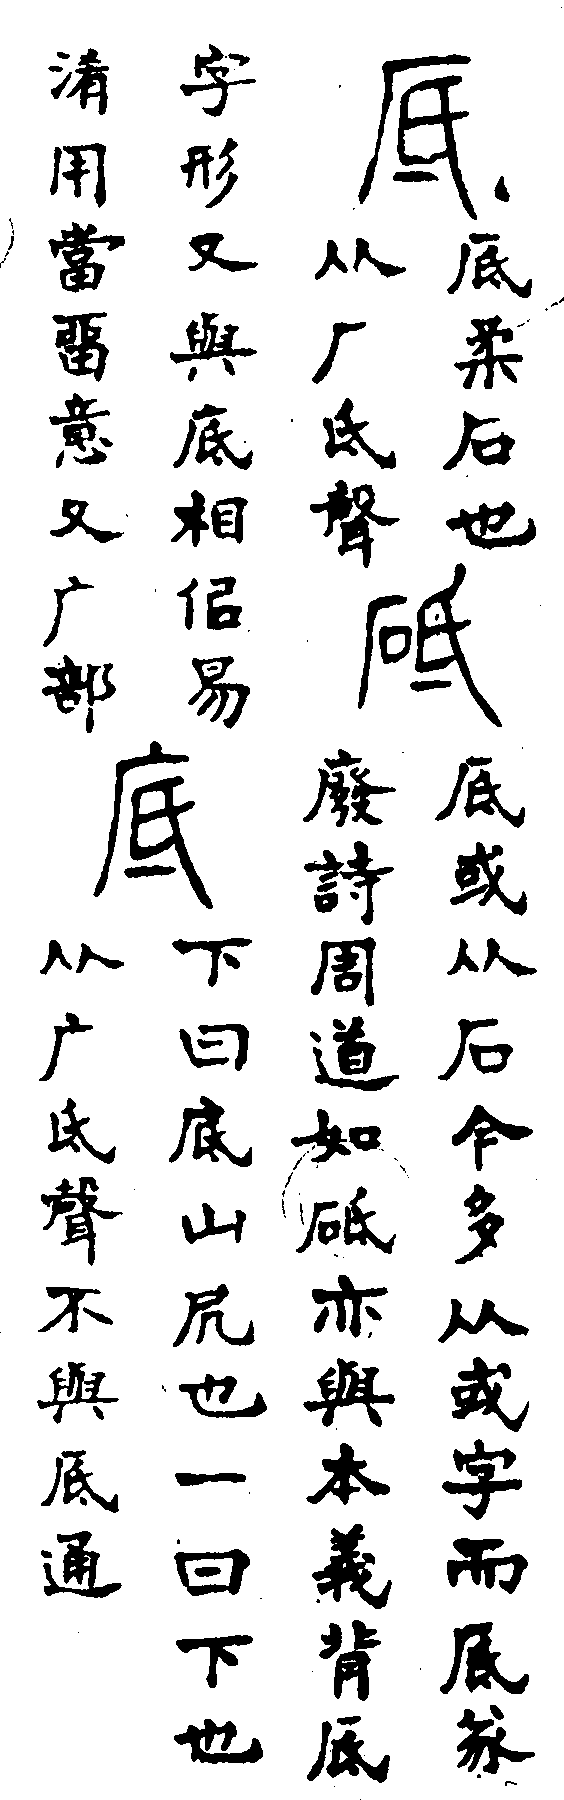 厎
厎柔石也
从厂氐聲
砥
厎或从石今多从或字而厎篆
廢詩周道如砥亦與本義背厎
字形又與底相佀易
淆用當畱意又广部
底
下曰底山凥也一曰下也
从广氐聲不與厎通